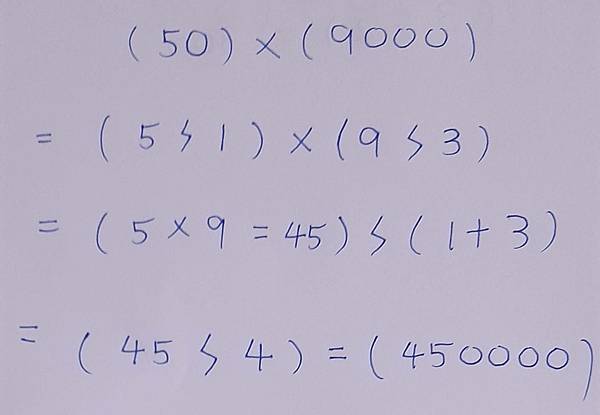 (50) × (9000)
= (5 ϟ 1) × (9 ϟ 3)
= (5 × 9 = 45) ϟ (1 + 3)
= (45 ϟ 4) = (450000)